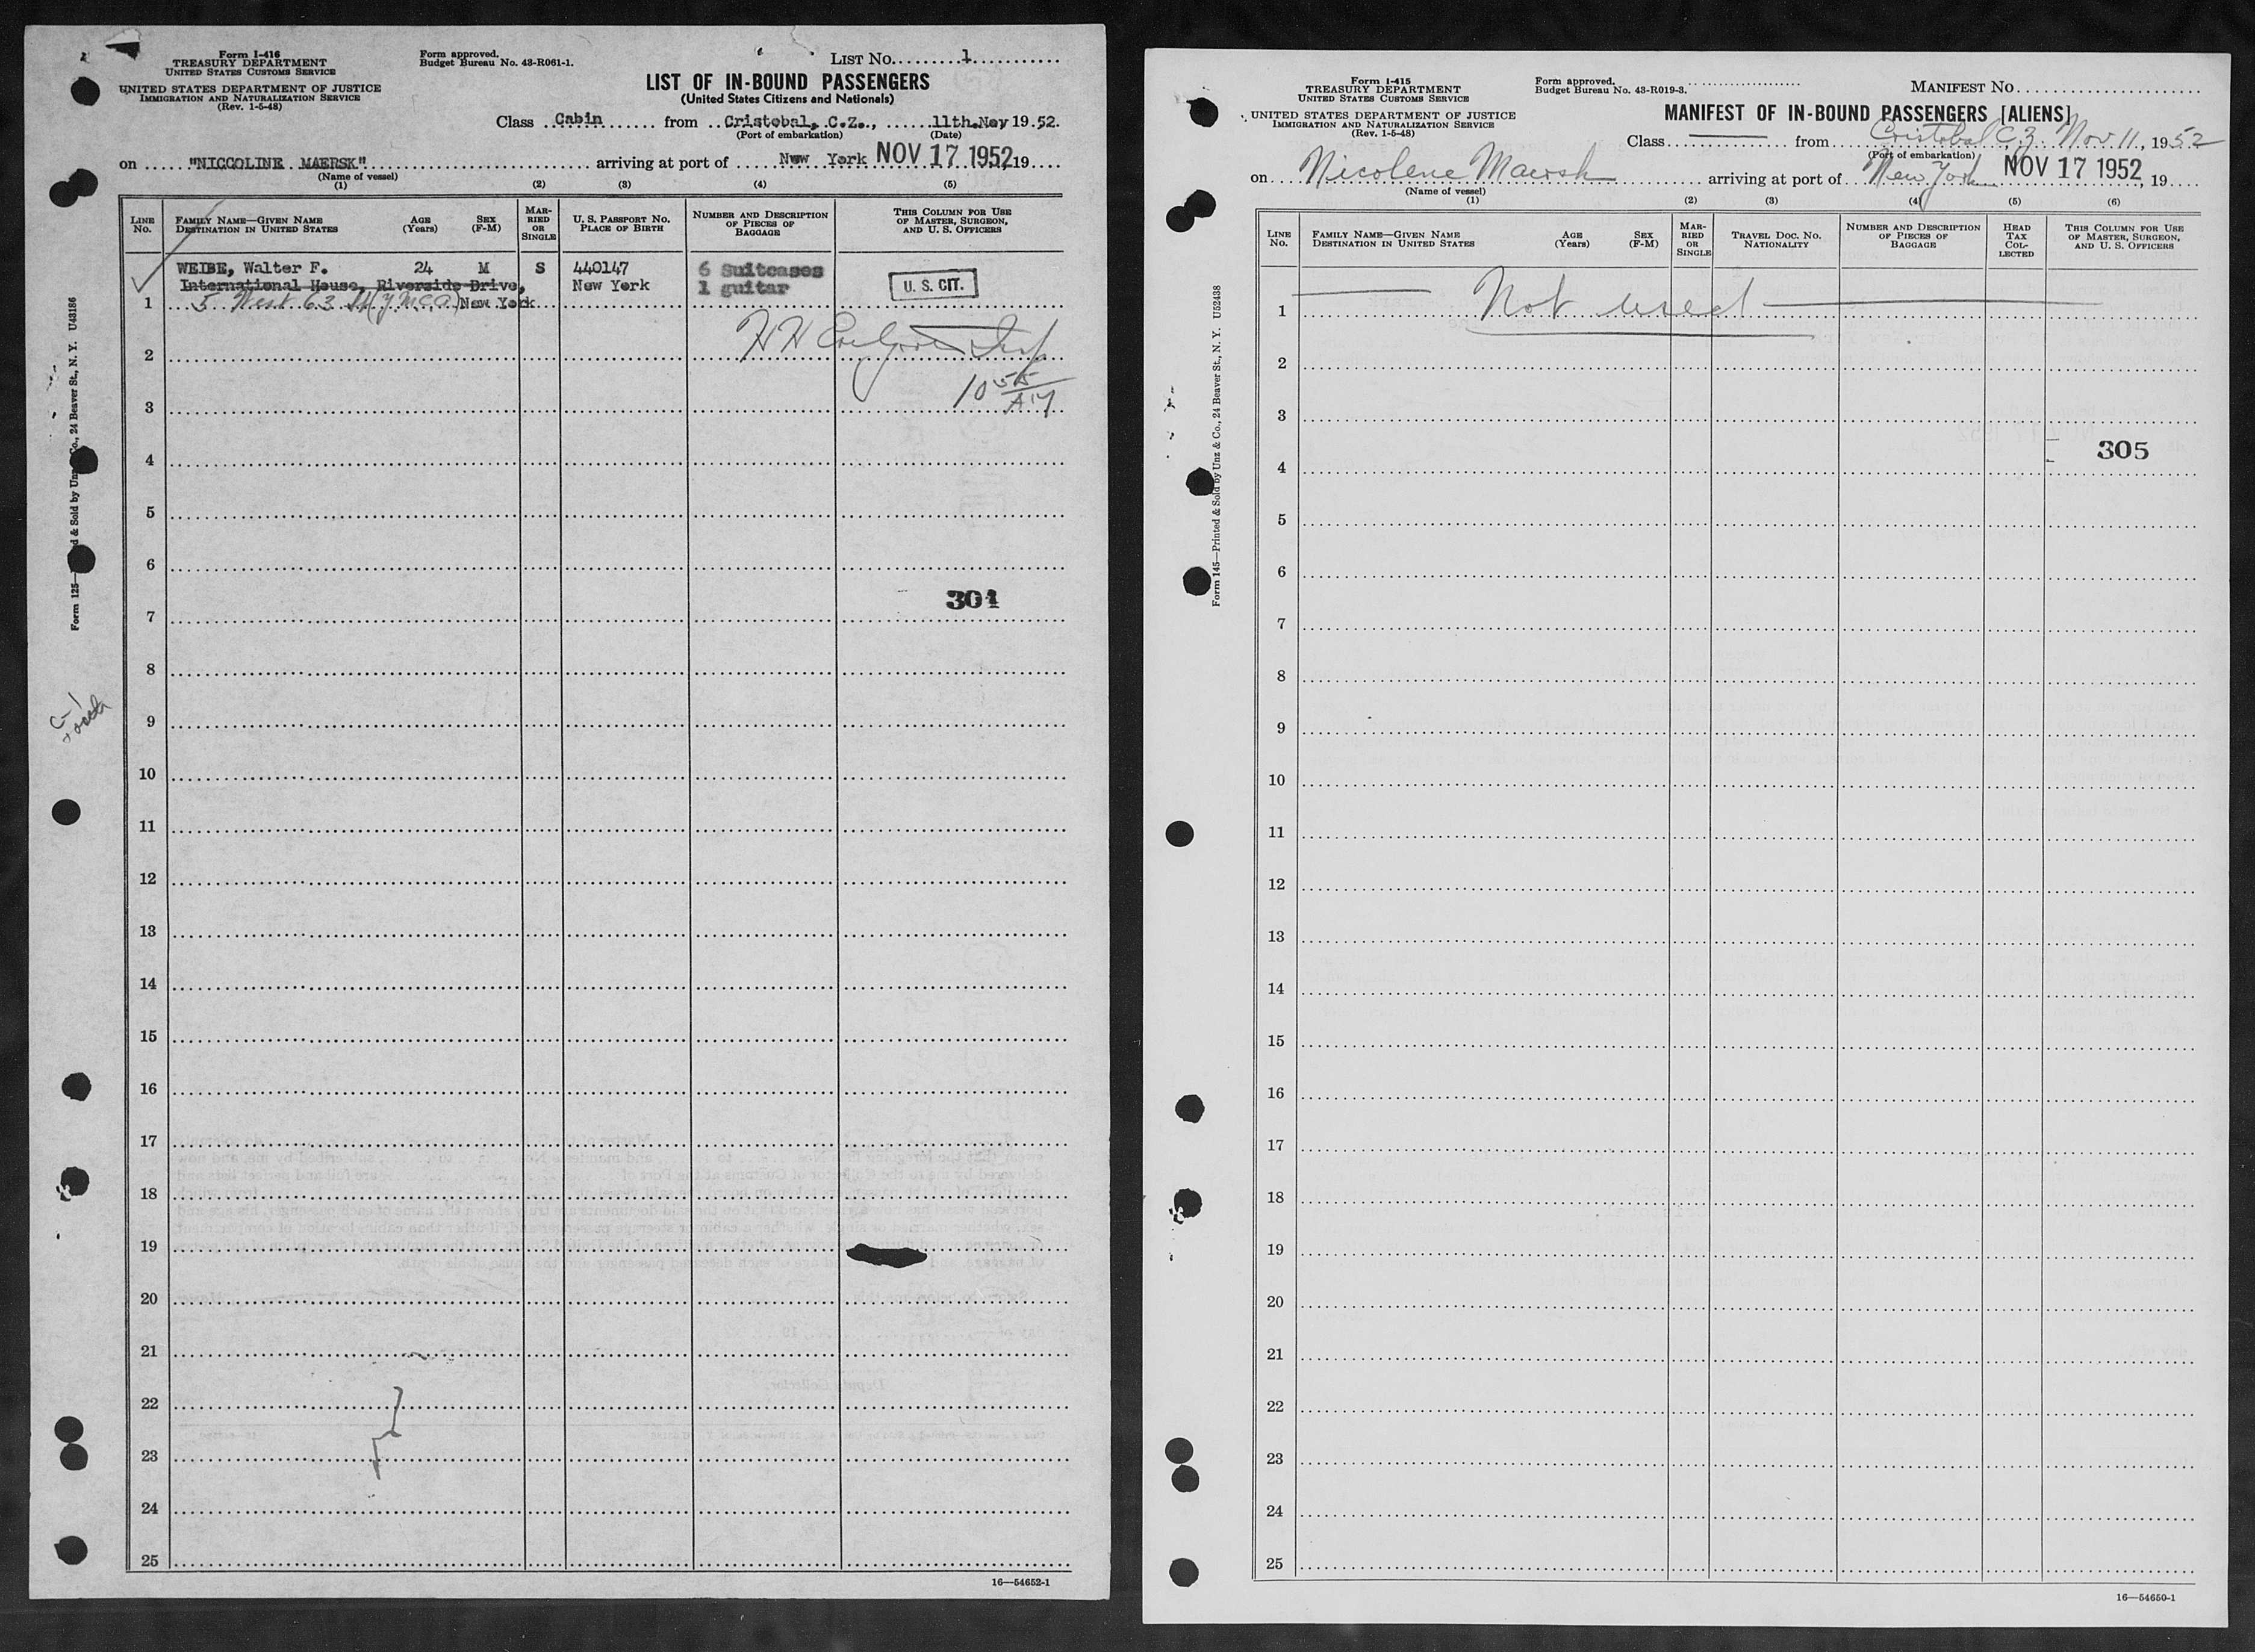 Form I-416
TREASURY DEPARTMENT
UNITED STATES CUSTOMS SERVICE
UNITED STATES DEPARTMENT OF JUSTICE
IMMIGRATION AND NATURALIZATION SERVICE
(Rev. 1-5-48)
Form approved.
Budget Bureau No. 43-R061-1.
LIST No. 1
LIST OF IN-BOUND PASSENGERS
(United States Citizens and Nationals)
Class Cabin from Cristobal, C.Z., 11th.Nov 19 52.
(Port of embarkation) (Date)
on "NICCOLINE MAERSK" arriving at port of New York NOV 17 1952, 19
(Name of vessel)
(1) (2) (3) (4) (5)
LINE No.
FAMILY NAME—GIVEN NAME
DESTINATION IN UNITED STATES
AGE (Years)
SEX (F-M)
MARRIED OR SINGLE
U. S. PASSPORT NO.
PLACE OF BIRTH
NUMBER AND DESCRIPTION OF PIECES OF BAGGAGE
THIS COLUMN FOR USE OF MASTER, SURGEON, AND U. S. OFFICERS
WEIBE, Walter F. 24 M S 440147 6 Suitcases
International House, Riverside Drive, New York 1 guitar U. S. CIT.
1 5 West 63 St (Y.M.C.A.) New York
2
3 10 55 AM
4
5
6
304
7
8
9
10
11
12
13
14
15
16
17
18
19
20
21
22
23
24
25
16—54652-1
Form 125— & Sold by Unz & Co., 24 Beaver St., N. Y. U43186
C-1
Form I-415
TREASURY DEPARTMENT
UNITED STATES CUSTOMS SERVICE
UNITED STATES DEPARTMENT OF JUSTICE
IMMIGRATION AND NATURALIZATION SERVICE
(Rev. 1-5-48)
Form approved.
Budget Bureau No. 43-R019-3.
MANIFEST No.
MANIFEST OF IN-BOUND PASSENGERS [ALIENS]
Class from Cristobal C.Z. Nov 11, 1952
(Port of embarkation)
on Nicolene Maersk arriving at port of New York NOV 17 1952, 19
(Name of vessel)
(1) (2) (3) (4) (5) (6)
LINE No.
FAMILY NAME—GIVEN NAME
DESTINATION IN UNITED STATES
AGE (Years)
SEX (F-M)
MARRIED OR SINGLE
TRAVEL DOC. NO.
NATIONALITY
NUMBER AND DESCRIPTION OF PIECES OF BAGGAGE
HEAD TAX COLLECTED
THIS COLUMN FOR USE OF MASTER, SURGEON, AND U. S. OFFICERS
1 Not used
2
3
305
4
5
6
7
8
9
10
11
12
13
14
15
16
17
18
19
20
21
22
23
24
25
16—54650-1
Form 145—Printed & Sold by Unz & Co., 24 Beaver St., N. Y. U52438